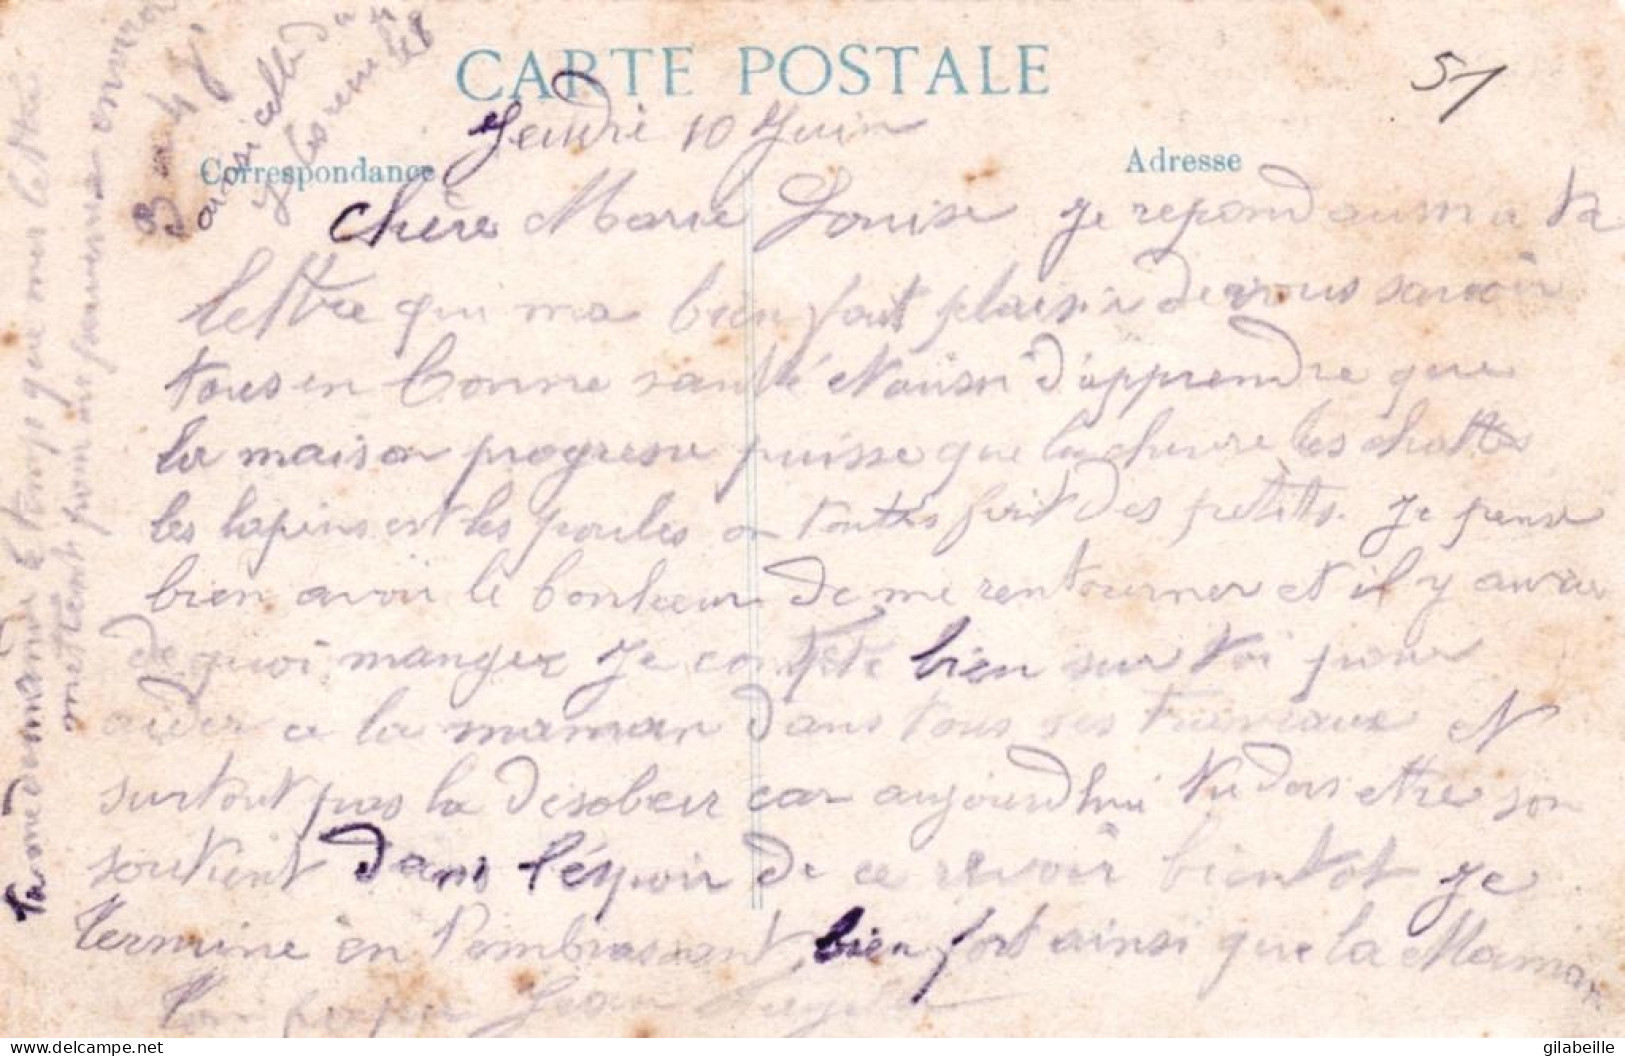 CARTE POSTALE
51
Jeudi 10 Juin
Correspondance
Adresse
chère Marie Louise je repond aussi a ta
lettre qui ma bien fait plaisir de vous savoir
tous en bonne santé et aussi d'apprendre que
la maison progresse puisse que la chevre les chattes
les lapins est les poules on toutes fait des petits. je pense
bien avoir le bonheur de me rentourner et il y aura
de quoi manger je compte bien sur toi pour
aider a la maman dans tous ses travaux et
surtout pas la desobeir car aujourdhui tu dois etre son
soutient dans l'éspoir de ce revoir bientot je
termine en t'embrassant bien fort ainsi que la Maman
ton papa Jean
tu me demande le temps que mes lettre
mettent pour arriver environ
3 ou 4 j
ainsi celle du
je les
gilabeille
delcampe.net